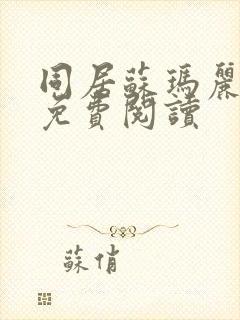 同居蘇瑪麗
免費閱讀
蘇俏